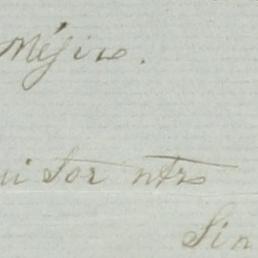 Méjico.
ui Sor ntro
Sin